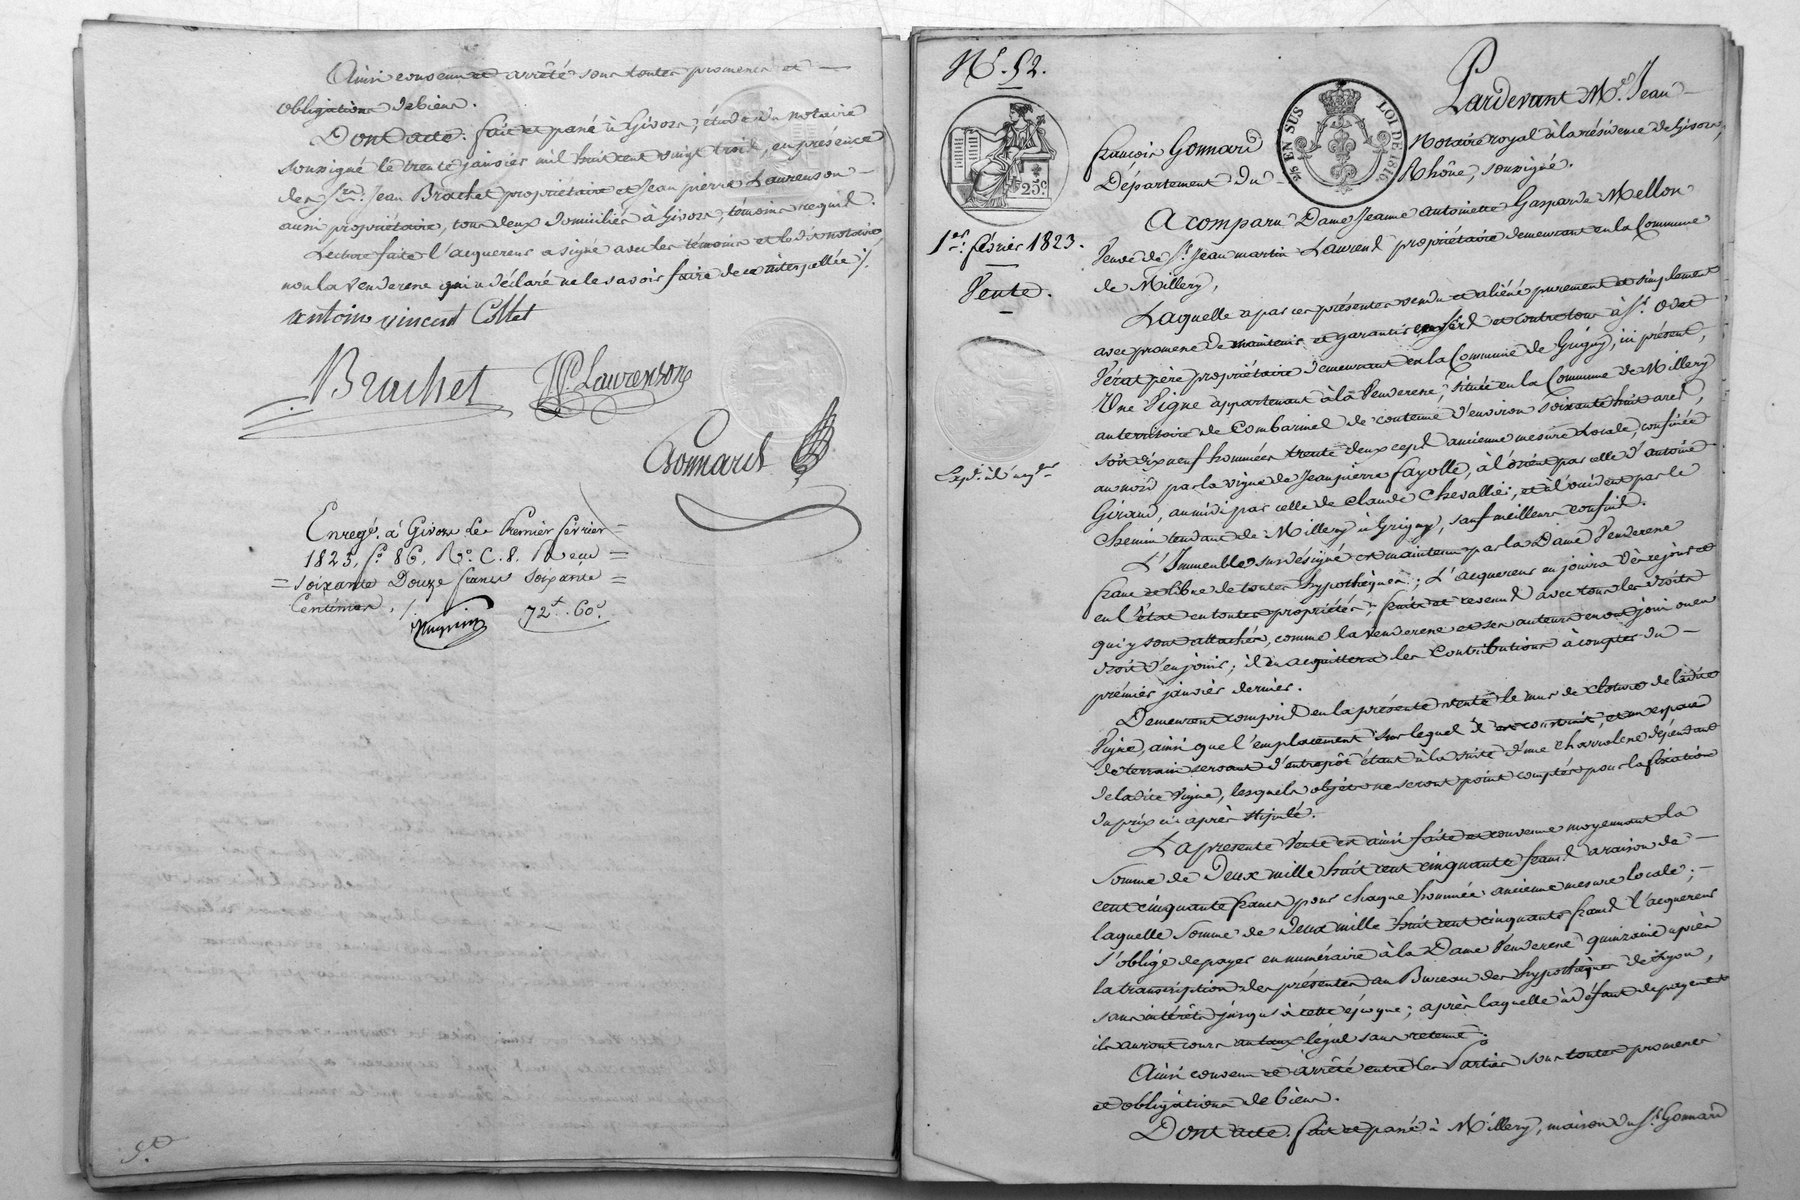 Ainsi convenu et arrêté sous toutes promesses et —
obligations de biens.
Dont acte : fait et passé à Givors, étude du notaire
soussigné le trente janvier mil huit cent vingt trois, en présence
des Srs. Jean Brachet propriétaire et Jean pierre Laurenson —
aussi propriétaire, tous deux domiciliés à Givors, témoins requis.
Lecture faite l'acquereur a signé avec les témoins et le dit notaire
non la Venderesse qui a déclaré ne le savoir faire de ce interpellée ./.
antoine vincent Collet
Brachet JP Laurenson
Gonnard
Enregé. à Givors le Premier février
1823, fo. 86, Ro. C. 8. Reçu =
= soixante Douze francs soixante =
Centimes ./.
72f. 60c.
No. 52.
Pardevant Me. Jean —
françois Gonnard Notaire royal à la résidence de Givors,
Département du Rhône, soussigné.
25 EN SUS LOI DE 1816
25c.
1er. février 1823.
Vente.
A comparu Dame Jeanne antoinette Gasparde Mellon
Veuve de Sr. Jean martin Laurend propriétaire demeurant en la Commune
de Millery,
Laquelle a par ces présentes vendu et aliéné purement et simplement
avec promesse de maintenir et garantir envers et contre tous à Sr. Odet
Vérat père propriétaire demeurant en la Commune de Grigny, ici présent,
Une Vigne appartenant à la Venderesse, située en la Commune de Millery
au territoire de Combarmel de contenue d'environ soixante huit ares,
soit dix neuf hommées trente deux ceps ancienne mesure locale, confinée
au nord par la vigne de Jean pierre fayolle, à l'orient par celle d'antoine
Giraud, au midi par celle de Claude Chevallier, et à l'occident par le
Chemin tendant de Millery à Grigny, sauf meilleurs confins.
L'Immeuble sus désigné est maintenu par la Dame Venderesse
franc et libre de toutes hypothèques ; L'acquereur en jouira dès ce jour et
en l'état en toutes propriétés, fruits et revenus avec tous les droits
qui y sont attachés, comme la venderesse et ses auteurs en ont joui ou eu
droit d'en jouir ; il en acquittera les Contributions à compter du —
prémier janvier dernier.
Demeurent compris en la présente vente le mur de cloture de ladite
Vigne, ainsi que l'emplacement sur lequel il est construit, et un espace
de terrain servant d'entrepôt étant à la suite d'une charrolerie dépendant
de ladite Vigne, lesquels objets ne seront point comptés pour la fixation
du prix ci après stipulé.
La présente Vente est ainsi faite et convenue moyennant la
Somme de Deux mille huit cent cinquante francs à raison de —
cent cinquante francs pour chaque hommée ancienne mesure locale ; —
laquelle Somme de deux mille huit cent cinquante francs l'acquereur
s'oblige de payer en numéraire à la Dame Venderesse quinzaine après
la transcription des présentes au Bureau des hypothèques de Lyon,
sans intérêts jusqu'à cette époque ; après laquelle à défaut de payement
ils auront cours au taux légal sans retenue.
Ainsi convenu et arrêté entre les Parties sous toutes promesses
et obligations de biens.
Dont acte : fait et passé à Millery, maison du Sr. Gonnard